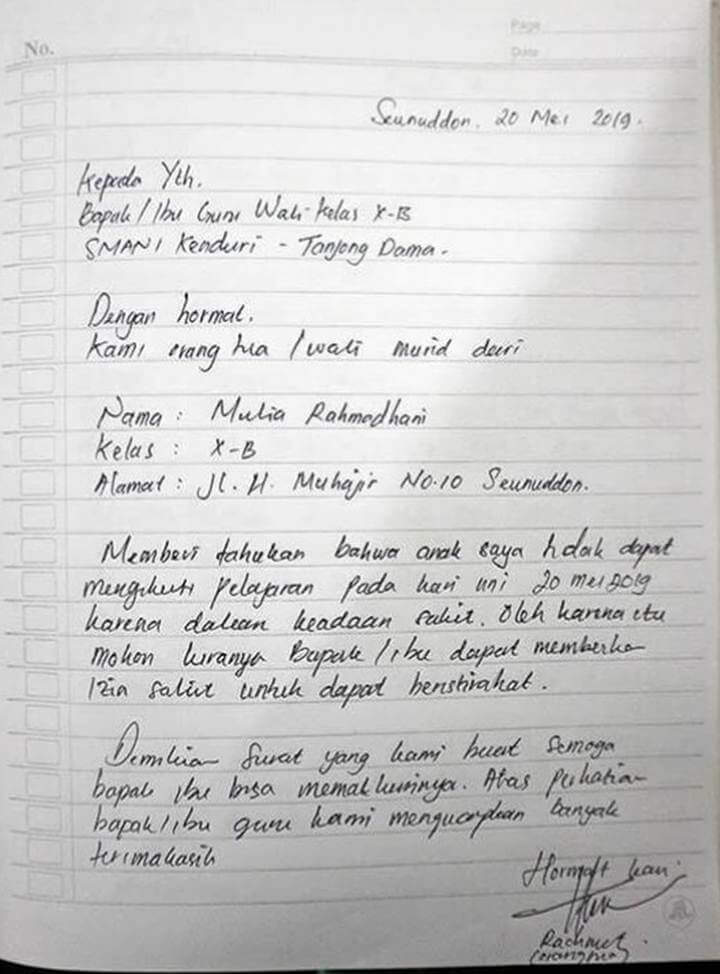 Page
No.
Date
Seunuddon. 20 Mei 2019.
Kepada Yth.
Bapak/Ibu Guru Wali Kelas X-B
SMAN 1 Kenduri - Tanjong Dama.
Dengan hormat.
Kami orang tua / wali murid dari
Nama : Mulia Rahmadhani
Kelas : X-B
Alamat : Jl. H. Muhajir No.10 Seunuddon.
Memberi tahukan bahwa anak saya tidak dapat
mengikuti pelajaran pada hari ini 20 mei 2019
karena dalam keadaan sakit. Oleh karena itu
mohon kiranya Bapak/ibu dapat memberikan
izin sakit untuk dapat beristirahat.
Demikian surat yang kami buat semoga
bapak ibu bisa memakluminya. Atas perhatian
bapak/ibu guru kami mengucapkan banyak
terimakasih
Hormat kami.
Rachmat
(orangtua)